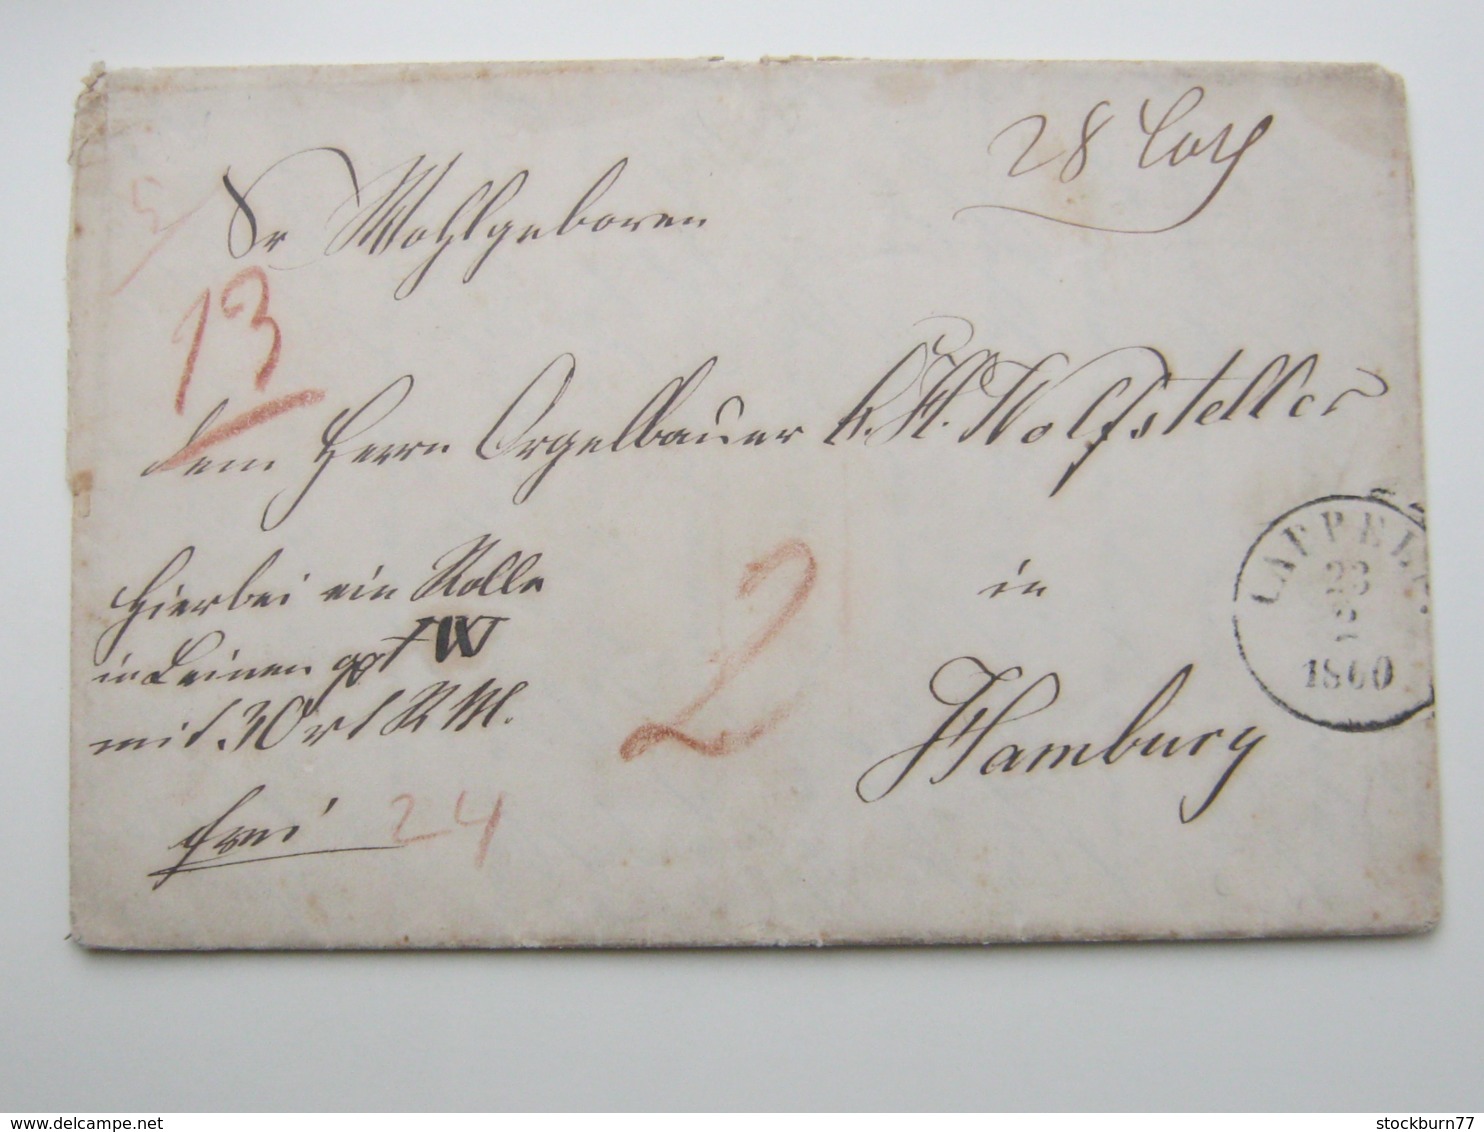 28 Loth
Sr Wohlgeboren
13
dem Herrn Orgelbauer C. H. Wolfsteller
in
Hamburg
CAPPELN
23
1860
Hierbei ein Rolle
in Leinen gez W
mit 30 rt RM.
frei
24
2
5
stockburn77